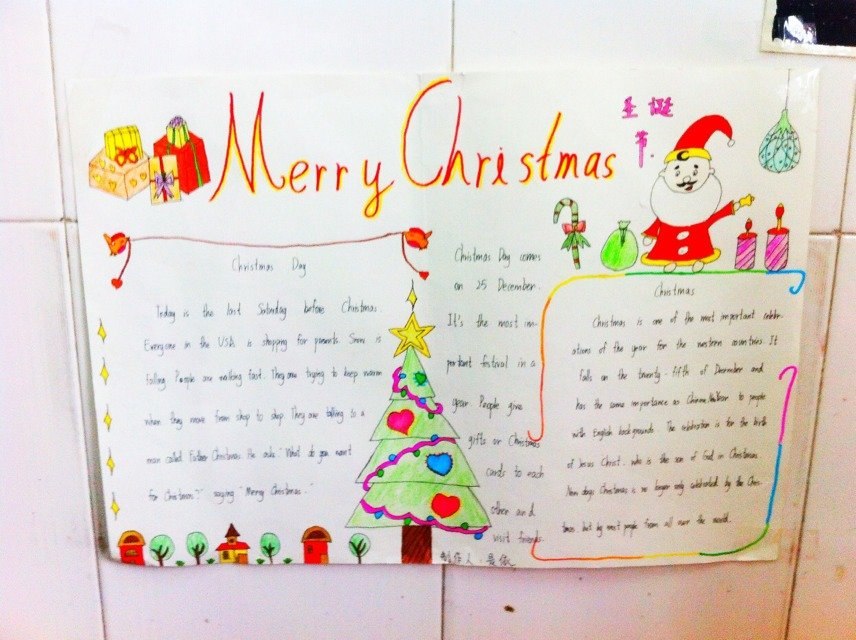 Merry Christmas
圣诞
节.
Christmas Day
Today is the last Saturday before Christmas.
Everyone in the USA is shopping for presents. Snow is
falling. People are walking fast. They are trying to keep warm
when they move from shop to shop. They are talking to a
man called Father Christmas. He asks "What do you want
for Christmas?" saying "Merry Christmas."
Christmas Day comes
on 25 December.
It's the most im-
portant festival in a
year. People give
gifts or Christmas
cards to each
other and
visit friends.
制作人:
Christmas
Christmas is one of the most important celebr-
ations of the year for the western countries. It
falls on the twenty-fifth of December and
has the same importance as Chinese to people
with English backgrounds. The celebration is for the birth
of Jesus Christ, who is the son of God in Christmas.
Now days Christmas is no longer only celebrated by the Chris-
tmas but by most people from all over the world.